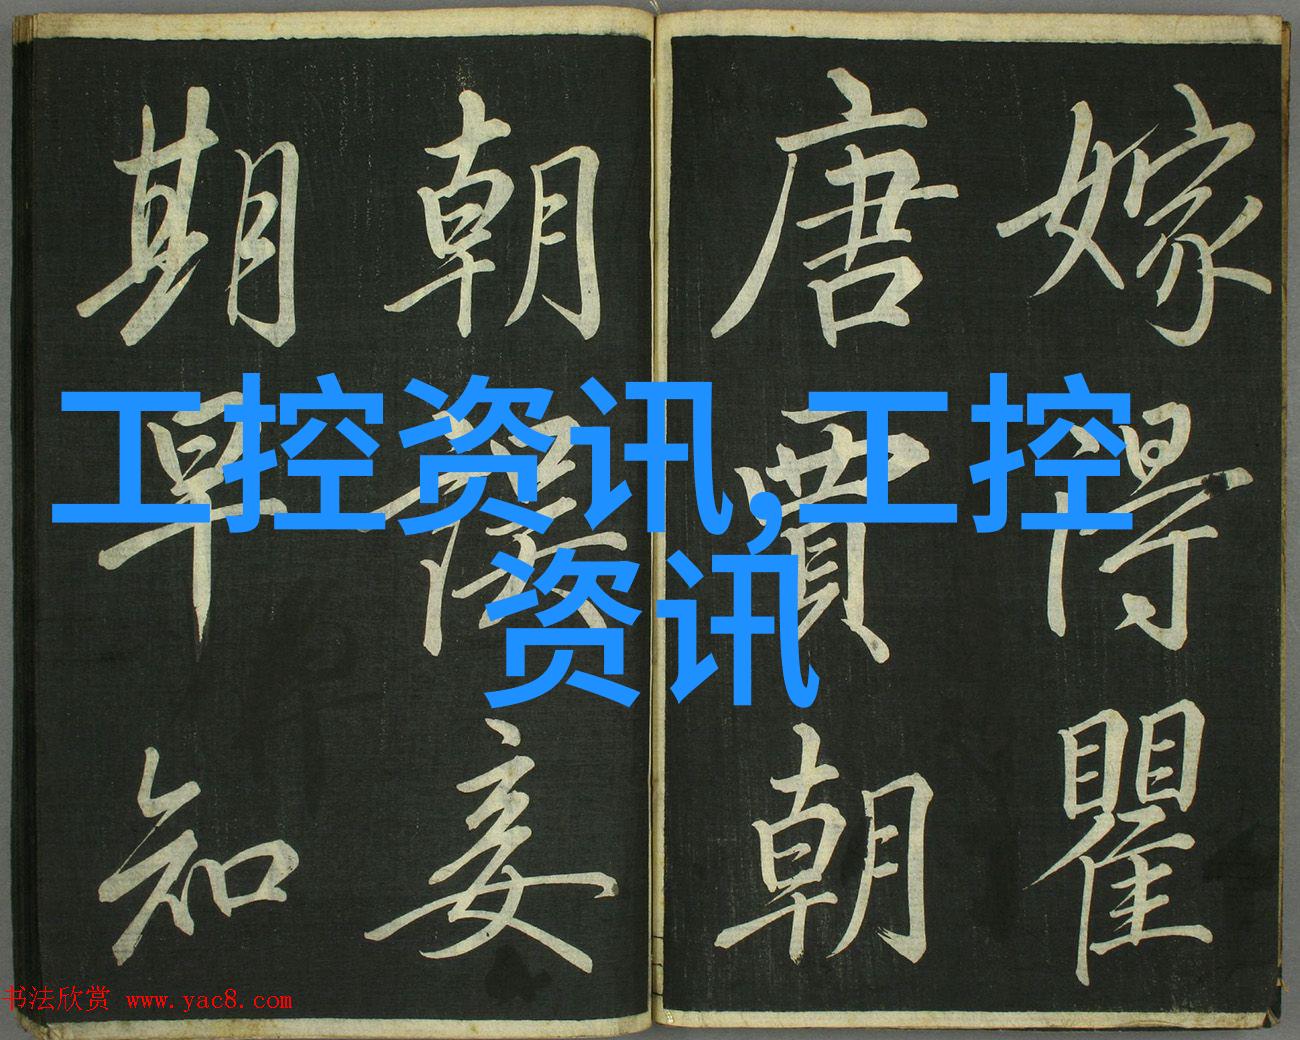 嫁得瞿
唐賈朝
朝妾
期早知
工控资讯,工控
资讯
书法欣赏 www.yac8.com